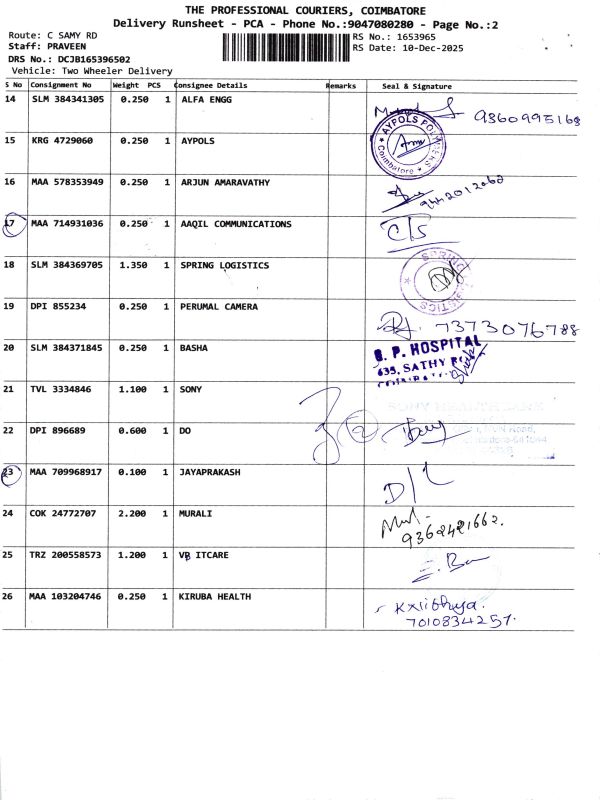 THE PROFESSIONAL COURIERS, COIMBATORE
Delivery Runsheet - PCA - Phone No.:9047080280 - Page No.:2
Route: C SAMY RD
RS No.: 1653965
Staff: PRAVEEN
RS Date: 10-Dec-2025
DRS No.: DCJB165396502
Vehicle: Two Wheeler Delivery
S No Consignment No Weight PCS Consignee Details Remarks Seal & Signature
14 SLM 384341305 0.250 1 ALFA ENGG 9360995168
15 KRG 4729060 0.250 1 AYPOLS
AYPOLS POLYMERS
Coimbatore
16 MAA 578353949 0.250 1 ARJUN AMARAVATHY
17 MAA 714931036 0.250 1 AAQIL COMMUNICATIONS C/S
18 SLM 384369705 1.350 1 SPRING LOGISTICS
SPRING LOGISTICS
19 DPI 855234 0.250 1 PERUMAL CAMERA 7373076788
20 SLM 384371845 0.250 1 BASHA
G. P. HOSPITAL
635, SATHY
21 TVL 3334846 1.100 1 SONY
22 DPI 896689 0.600 1 DO 2
23 MAA 709968917 0.100 1 JAYAPRAKASH D/L
24 COK 24772707 2.200 1 MURALI
9362421662.
25 TRZ 200558573 1.200 1 VB ITCARE
26 MAA 103204746 0.250 1 KIRUBA HEALTH
7010834257.